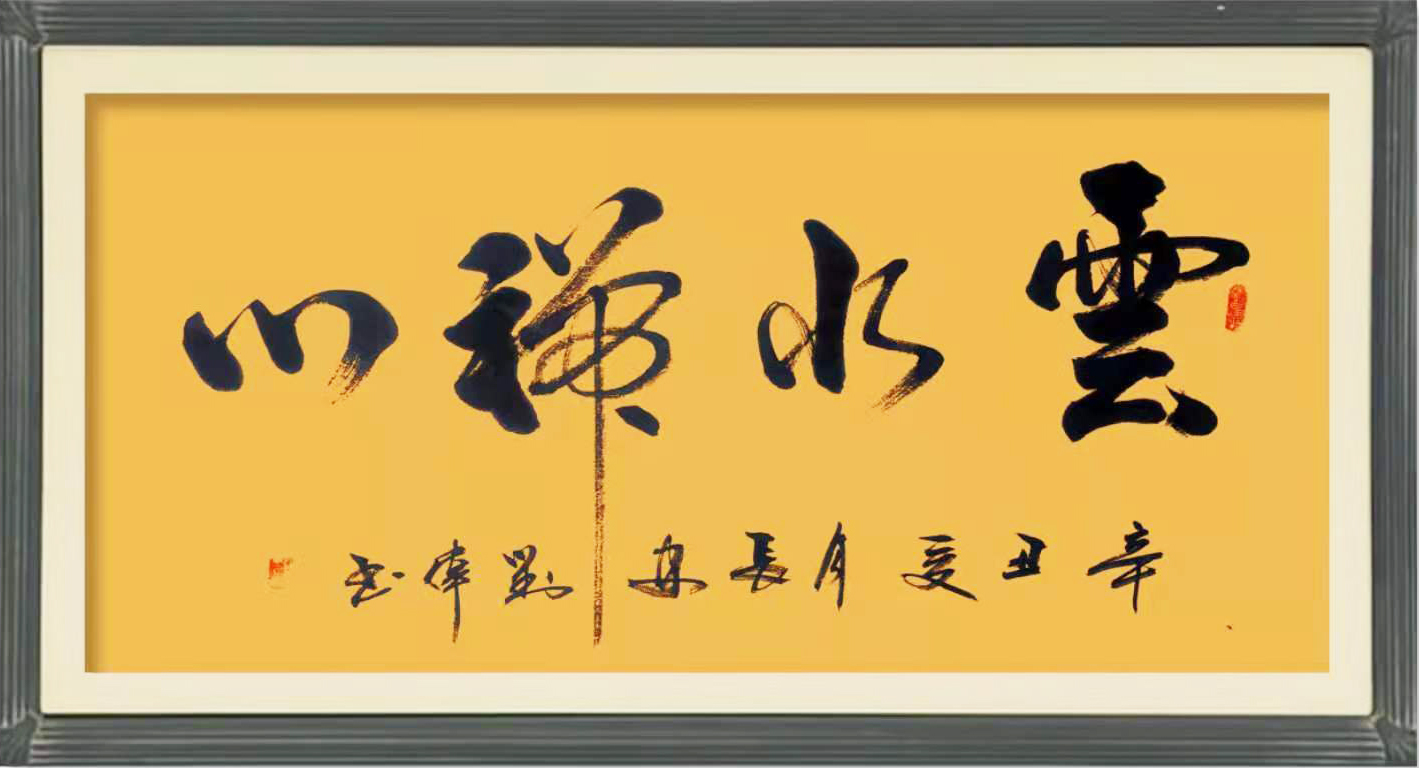 雲水禅心
辛丑夏月長安劉偉书